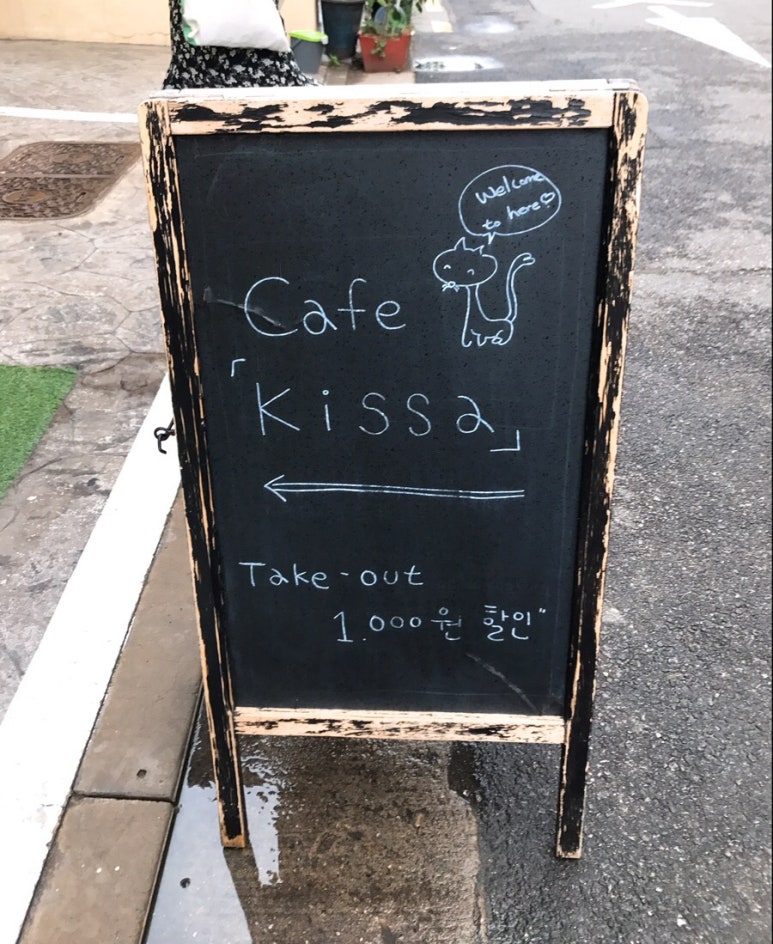 Welcome
to here♡
Cafe
「Kissa」
Take-out
1.000원 할인"